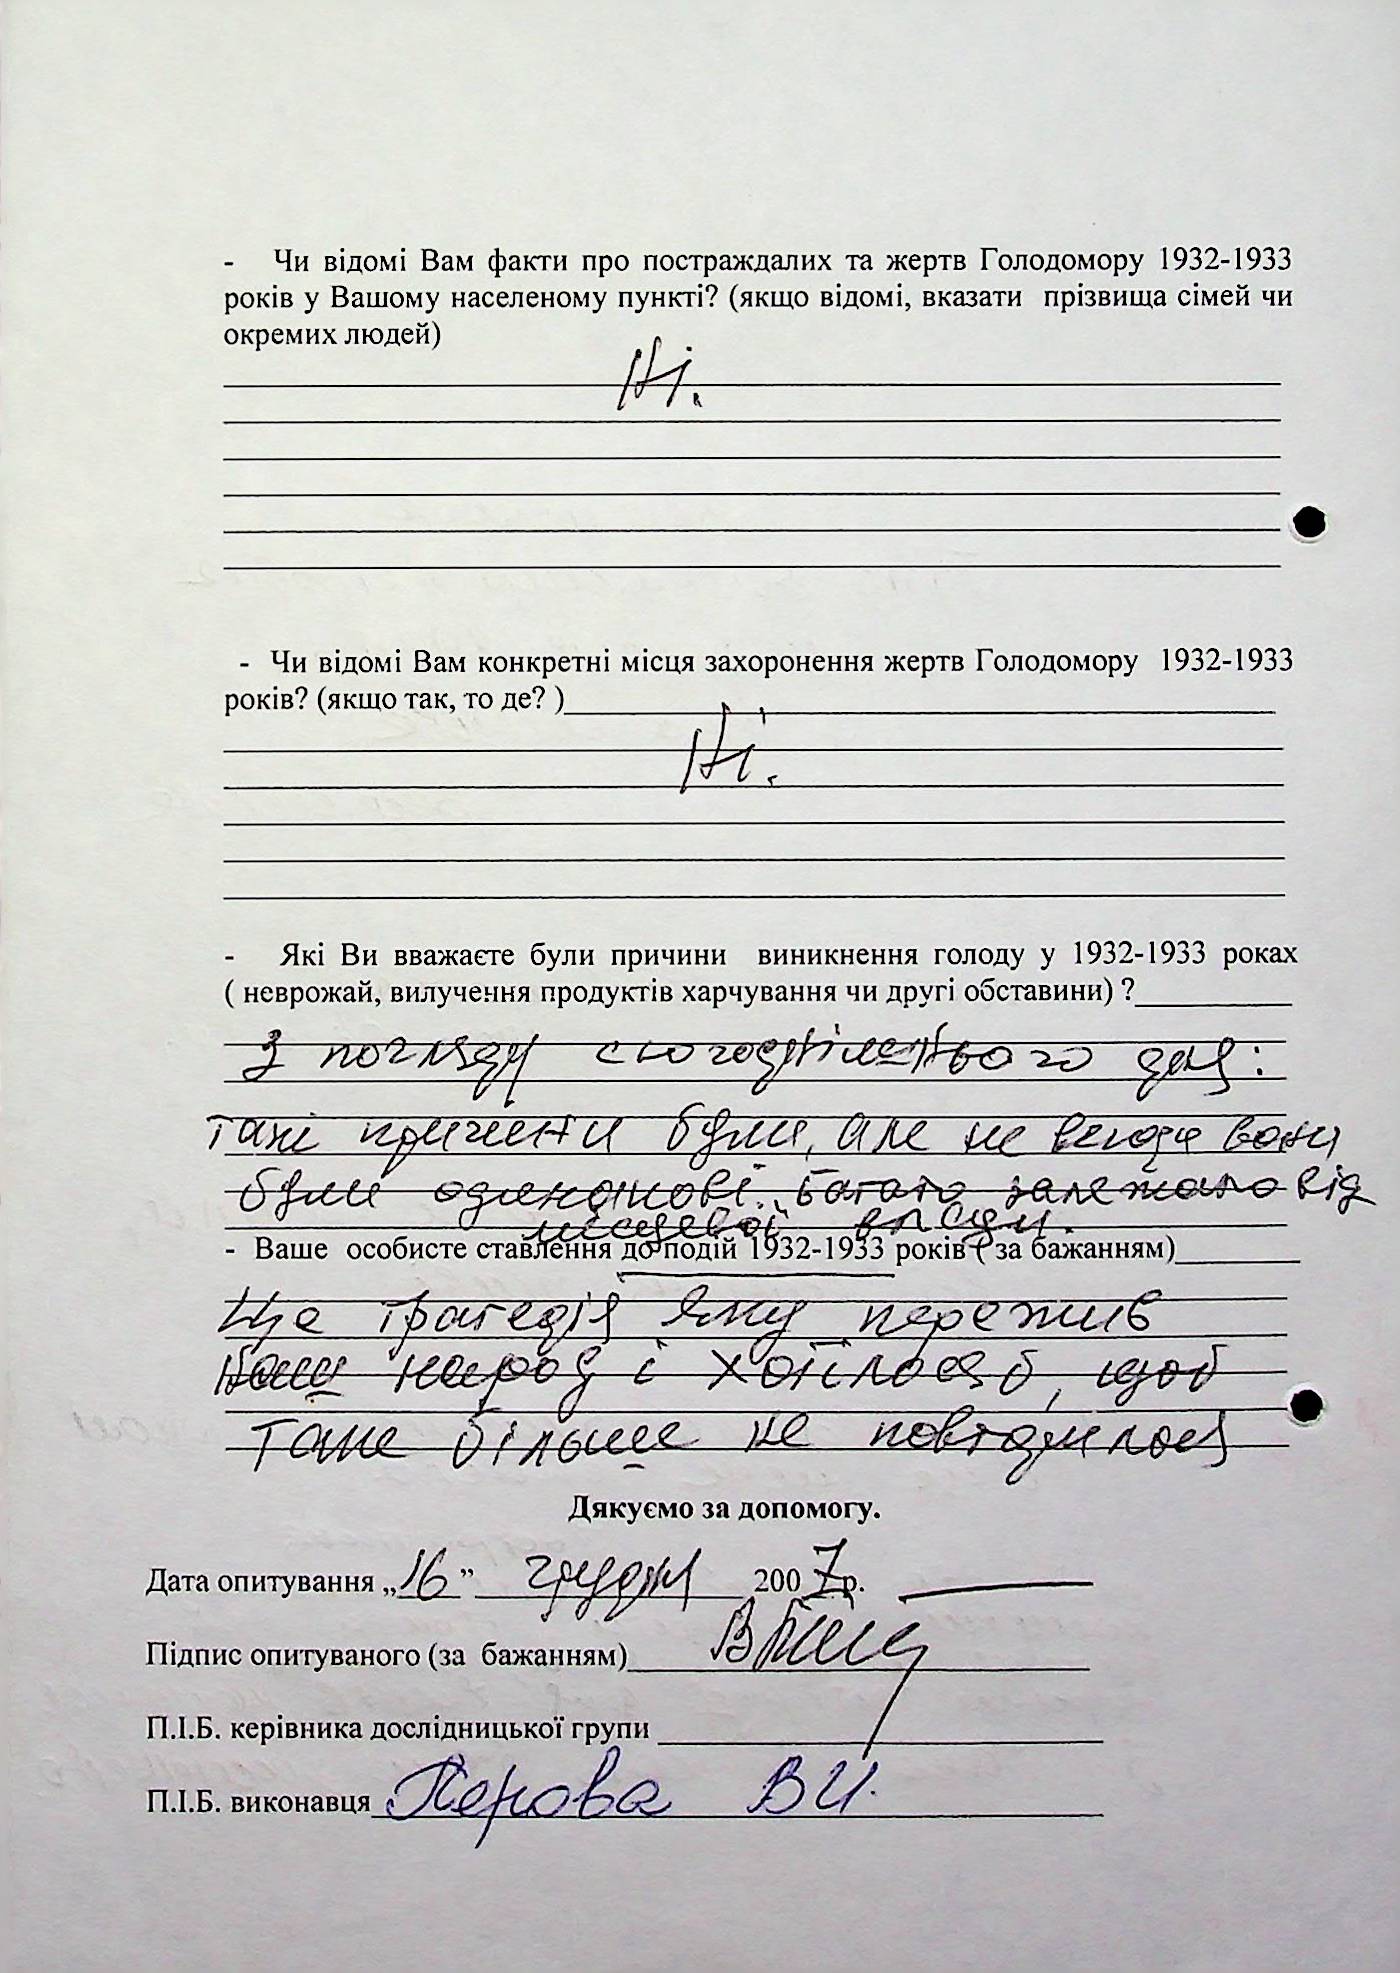 - Чи відомі Вам факти про постраждалих та жертв Голодомору 1932-1933
років у Вашому населеному пункті? (якщо відомі, вказати прізвища сімей чи
окремих людей)
Ні.
- Чи відомі Вам конкретні місця захоронення жертв Голодомору 1932-1933
років? (якщо так, то де? )
Ні.
- Які Ви вважаєте були причини виникнення голоду у 1932-1933 роках
( неврожай, вилучення продуктів харчування чи другі обставини) ?
З погляду сьогоднішнього дня:
такі причини були, але не всюди вони
були однакові. Багато залежало від
місцевої влади.
- Ваше особисте ставлення до подій 1932-1933 років ( за бажанням)
Це трагедія яку пережив
Наш народ і хотілося б, щоб
таке більше не повторилося
Дякуємо за допомогу.
Дата опитування „16” грудня 2007р.
Підпис опитуваного (за бажанням)
П.І.Б. керівника дослідницької групи
П.І.Б. виконавця Перова В И.